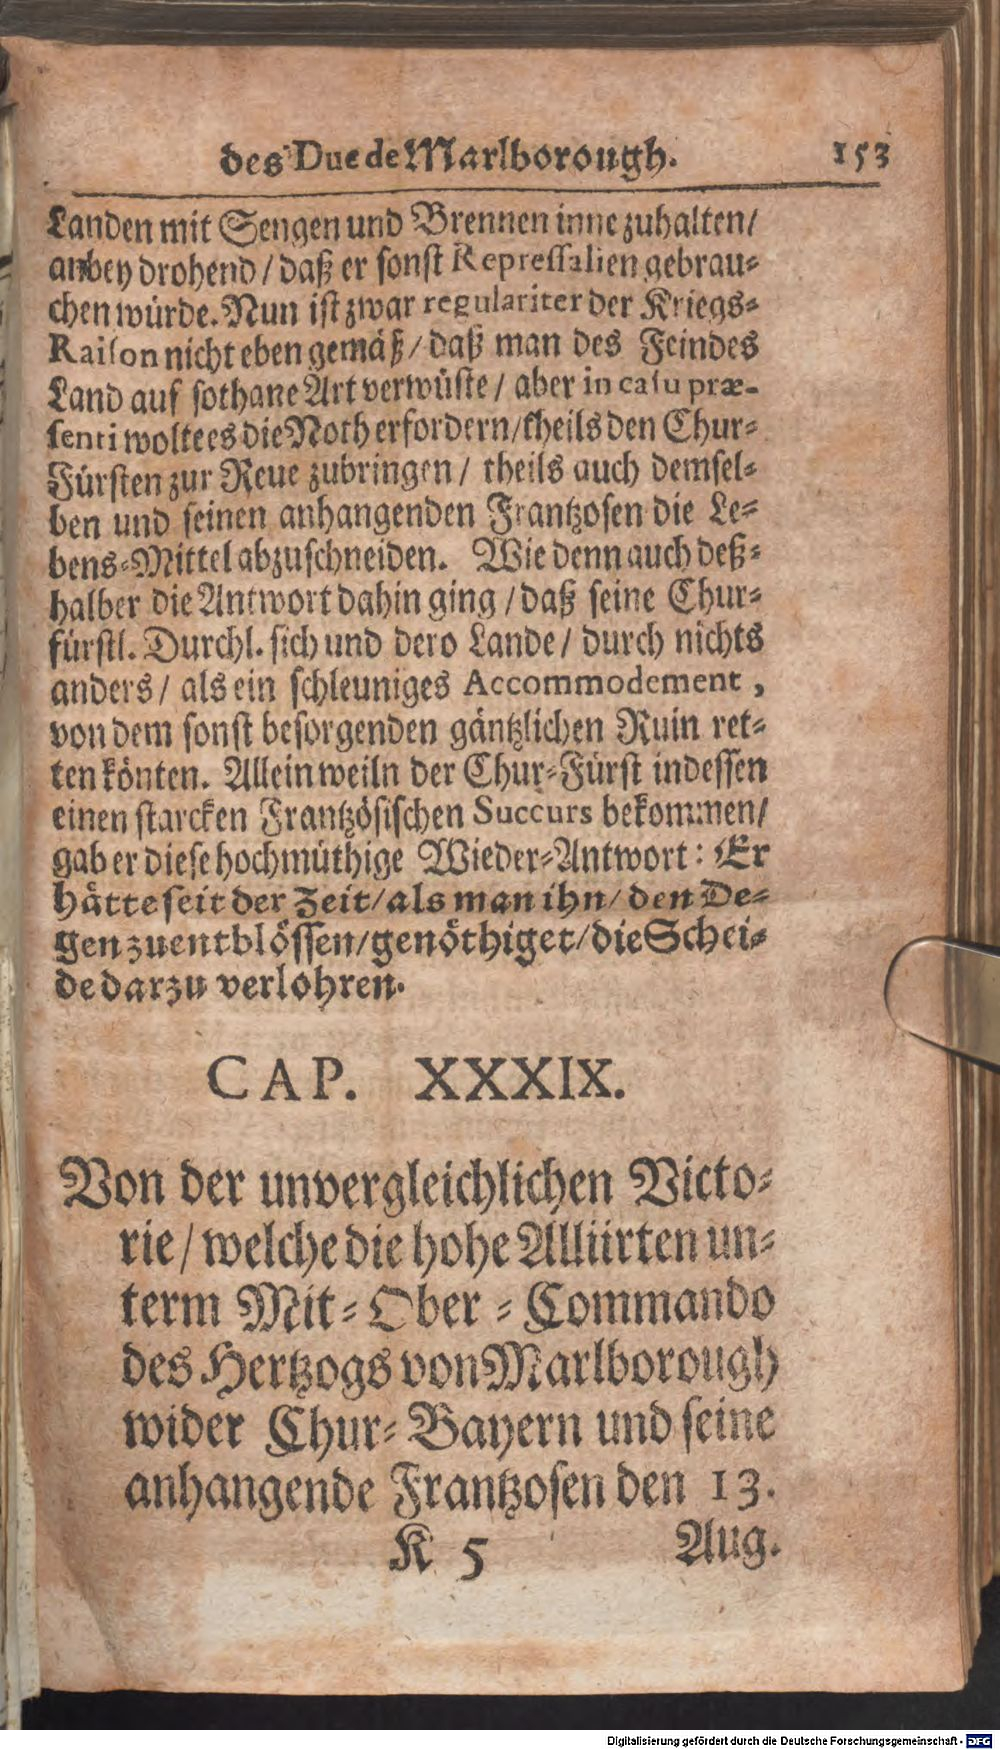 des Duc de Marlborough. 153
Landen mit Sengen und Brennen inne zuhalten/
anbey drohend / daß er sonst Repressalien gebrau-
chen würde. Nun ist zwar regulariter der Kriegs-
Raison nicht eben gemäß / daß man des Feindes
Land auf sothane Art verwüste / aber in casu præ-
senti woltees die Noth erfordern/theils den Chur-
Fürsten zur Reue zubringen / theils auch demsel-
ben und seinen anhangenden Frantzosen die Le-
bens-Mittel abzuschneiden. Wie denn auch deß-
halber die Antwort dahin ging / daß seine Chur-
fürstl. Durchl. sich und dero Lande / durch nichts
anders / als ein schleuniges Accommodement ,
von dem sonst besorgenden gäntzlichen Ruin ret-
ten könten. Allein weiln der Chur-Fürst indessen
einen starcken Frantzösischen Succurs bekommen/
gab er diese hochmüthige Wieder-Antwort: Er
hätte seit der Zeit/als man ihn/ den De-
gen zuentblössen/genöthiget/die Schei-
de darzu verlohren.
CAP. XXXIX.
Von der unvergleichlichen Victo-
rie / welche die hohe Alliirten un-
term Mit-Ober-Commando
des Hertzogs von Marlborough
wider Chur-Bayern und seine
anhangende Frantzosen den 13.
K 5 Aug.
Digitalisierung gefördert durch die Deutsche Forschungsgemeinschaft - DFG